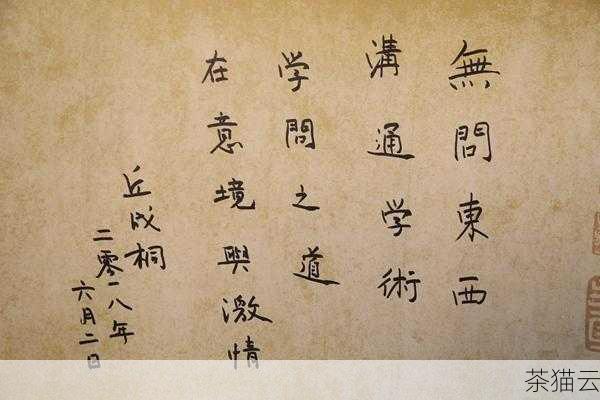 無問東西
溝通学術
学問之道
在意境與激情
丘成桐
二零一八年
六月二日
茶猫云